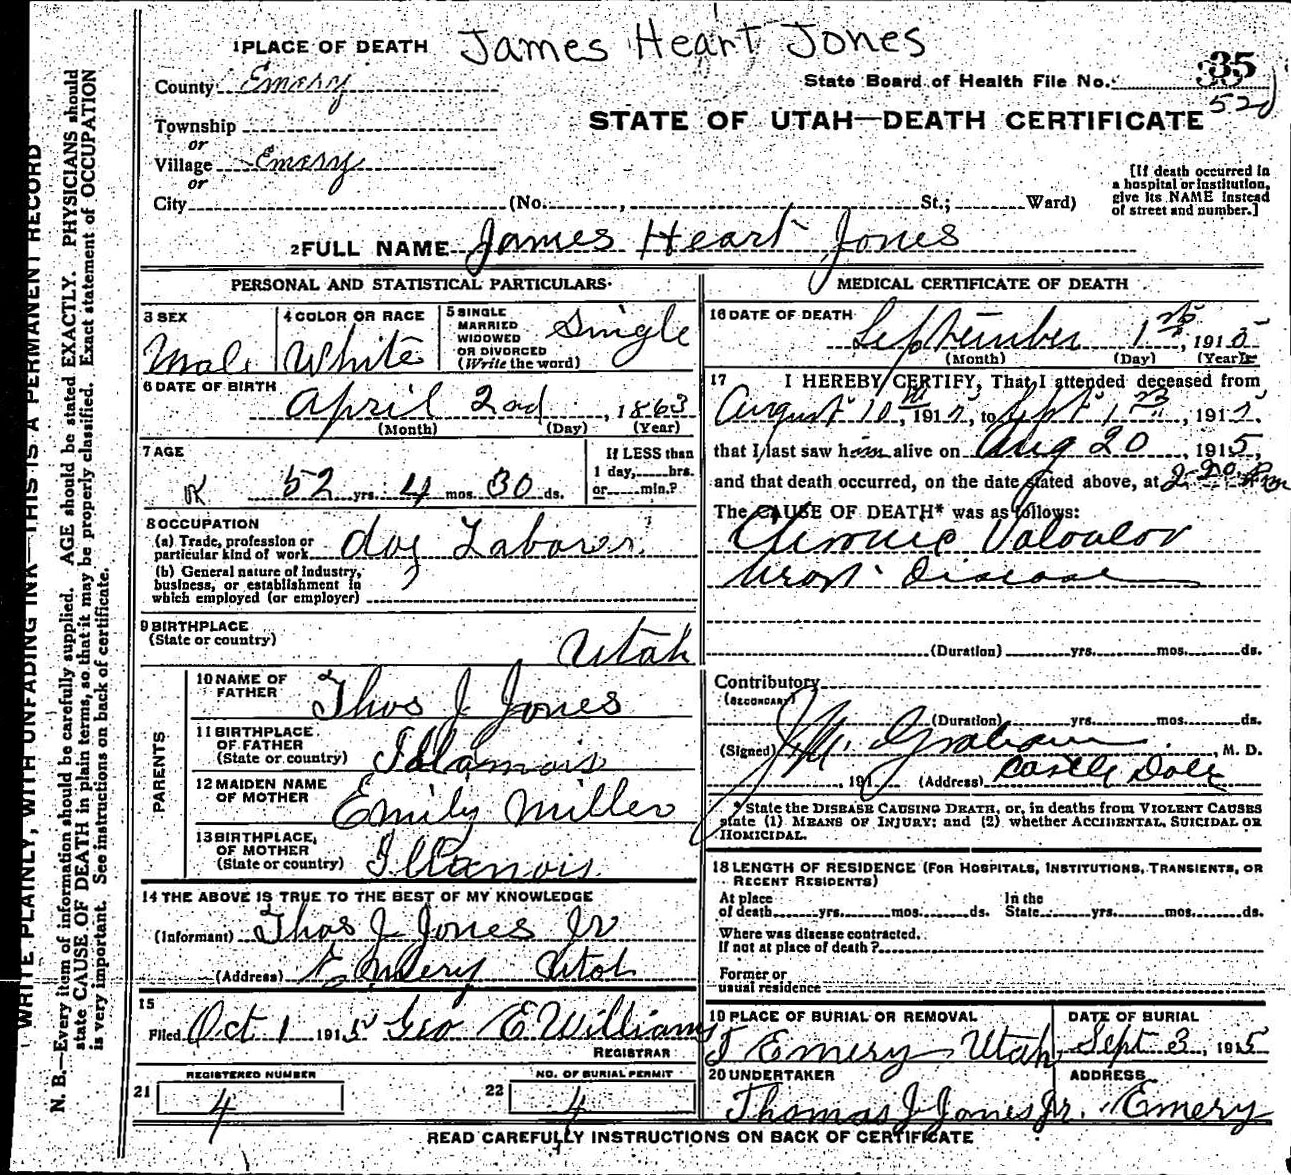 James Heart Jones
1 PLACE OF DEATH
County Emery
State Board of Health File No. 35
520
STATE OF UTAH—DEATH CERTIFICATE
Township
or
Village Emery
or
City (No. , St.; Ward)
[If death occurred in
a hospital or institution,
give its NAME instead
of street and number.]
2 FULL NAME James Heart Jones
PERSONAL AND STATISTICAL PARTICULARS
3 SEX
Male
4 COLOR OR RACE
White
5 SINGLE
MARRIED
WIDOWED
OR DIVORCED
(Write the word)
Single
6 DATE OF BIRTH
April 2nd, 1863
(Month) (Day) (Year)
7 AGE
52 yrs. 4 mos. 30 ds.
If LESS than
1 day, hrs.
or min.?
8 OCCUPATION
(a) Trade, profession or
particular kind of work day Laborer
(b) General nature of industry,
business, or establishment in
which employed (or employer)
9 BIRTHPLACE
(State or country)
Utah
PARENTS
10 NAME OF
FATHER
Thos J Jones
11 BIRTHPLACE
OF FATHER
(State or country)
Illanois
12 MAIDEN NAME
OF MOTHER
Emily Miller
13 BIRTHPLACE
OF MOTHER
(State or country)
Illanois
14 THE ABOVE IS TRUE TO THE BEST OF MY KNOWLEDGE
(Informant) Thos J Jones Jr
(Address) Emery Utah
15
Filed Oct 1 1915 Geo E Williams
REGISTRAR
REGISTERED NUMBER
21 4
NO. OF BURIAL PERMIT
22 4
MEDICAL CERTIFICATE OF DEATH
16 DATE OF DEATH
September 1st, 1915
(Month) (Day) (Year)
17 I HEREBY CERTIFY, That I attended deceased from
August 10th, 1915, to Sept 1st, 1915,
that I last saw him alive on Aug 20, 1915,
and that death occurred, on the date stated above, at 2 Pm
The CAUSE OF DEATH* was as follows:
Chronic Valvular
Heart Disease
(Duration) yrs. mos. ds.
Contributory
(SECONDARY)
(Duration) yrs. mos. ds.
(Signed) Graham, M. D.
, 191 (Address) Castle Dale
* State the DISEASE CAUSING DEATH, or, in deaths from VIOLENT CAUSES
state (1) MEANS OF INJURY; and (2) whether ACCIDENTAL, SUICIDAL OR
HOMICIDAL.
18 LENGTH OF RESIDENCE (FOR HOSPITALS, INSTITUTIONS, TRANSIENTS, OR
RECENT RESIDENTS)
At place
of death yrs. mos. ds.
In the
State yrs. mos. ds.
Where was disease contracted,
If not at place of death?
Former or
usual residence
19 PLACE OF BURIAL OR REMOVAL
Emery Utah
DATE OF BURIAL
Sept 3, 1915
20 UNDERTAKER
Thomas J Jones Jr.
ADDRESS
Emery
READ CAREFULLY INSTRUCTIONS ON BACK OF CERTIFICATE
WRITE PLAINLY, WITH UNFADING INK—THIS IS A PERMANENT RECORD
N. B.—Every item of information should be carefully supplied. AGE should be stated EXACTLY. PHYSICIANS should
state CAUSE OF DEATH in plain terms, so that it may be properly classified. Exact statement of OCCUPATION
is very important. See instructions on back of certificate.